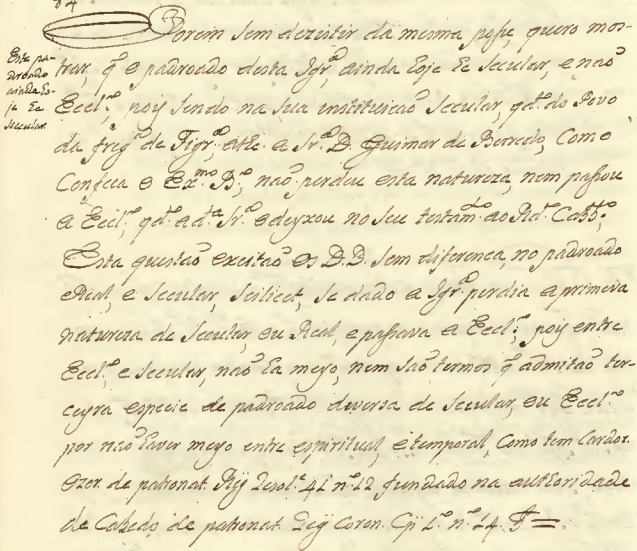 Porem sem dezistir da mesma posse, quero mos-
Este pa-
droado
ainda éo-
je Ee
secular.
trar, q̃ o padroado desta Igrª ainda Eoje Ee secular, e naõ
Eccl.º, pois sendo na sua instituisaõ secular, qdº do Povo
da fregª de Figrº, athe a Srª D. Guimar de Berredo, Como
Confeca o Ex.mo B.º, naõ perdeu esta natureza, nem passou
a Eccl.º, qdº a dª Srª o deyxou no seu testamtº ao Rdº Cabbº.
Esta questaõ excitaõ os D.D. sem diferenca, no padroado
Real, e secular, scilicet, se dado a Igrª perdia a primeva
natureza de secular, ou Real, e passava a Eccl.º; pois entre
Eccl.º e secular, naõ Ea meyo, nem saõ termos q̃ admitaõ ter-
ceyra especie de padroado diversa de secular, ou Eccl.º
por naõ Eaver meyo entre espiritual, e temporal, Como tem Cardos.
Ozor. de patronat. Rij resol. 41 nº 12 fundado na authoridade
de Cabedo de patronat. Reg. Coron. Cp. 1.º nº 14.